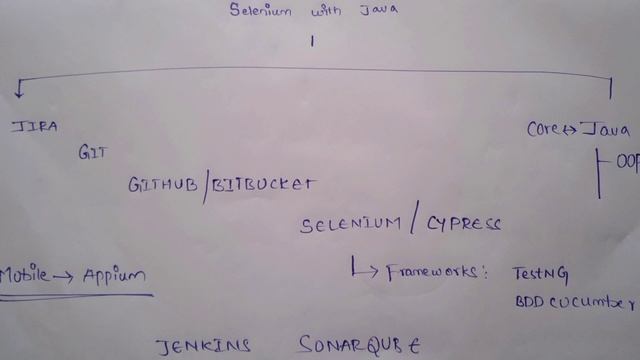 Selenium with Java
JIRA
Core ↔ Java
GIT
OOP
GITHUB/BITBUCKET
SELENIUM / CYPRESS
Mobile → Appium
↳ Frameworks: TestNG
BDD CUCUMBER
JENKINS SONARQUBE